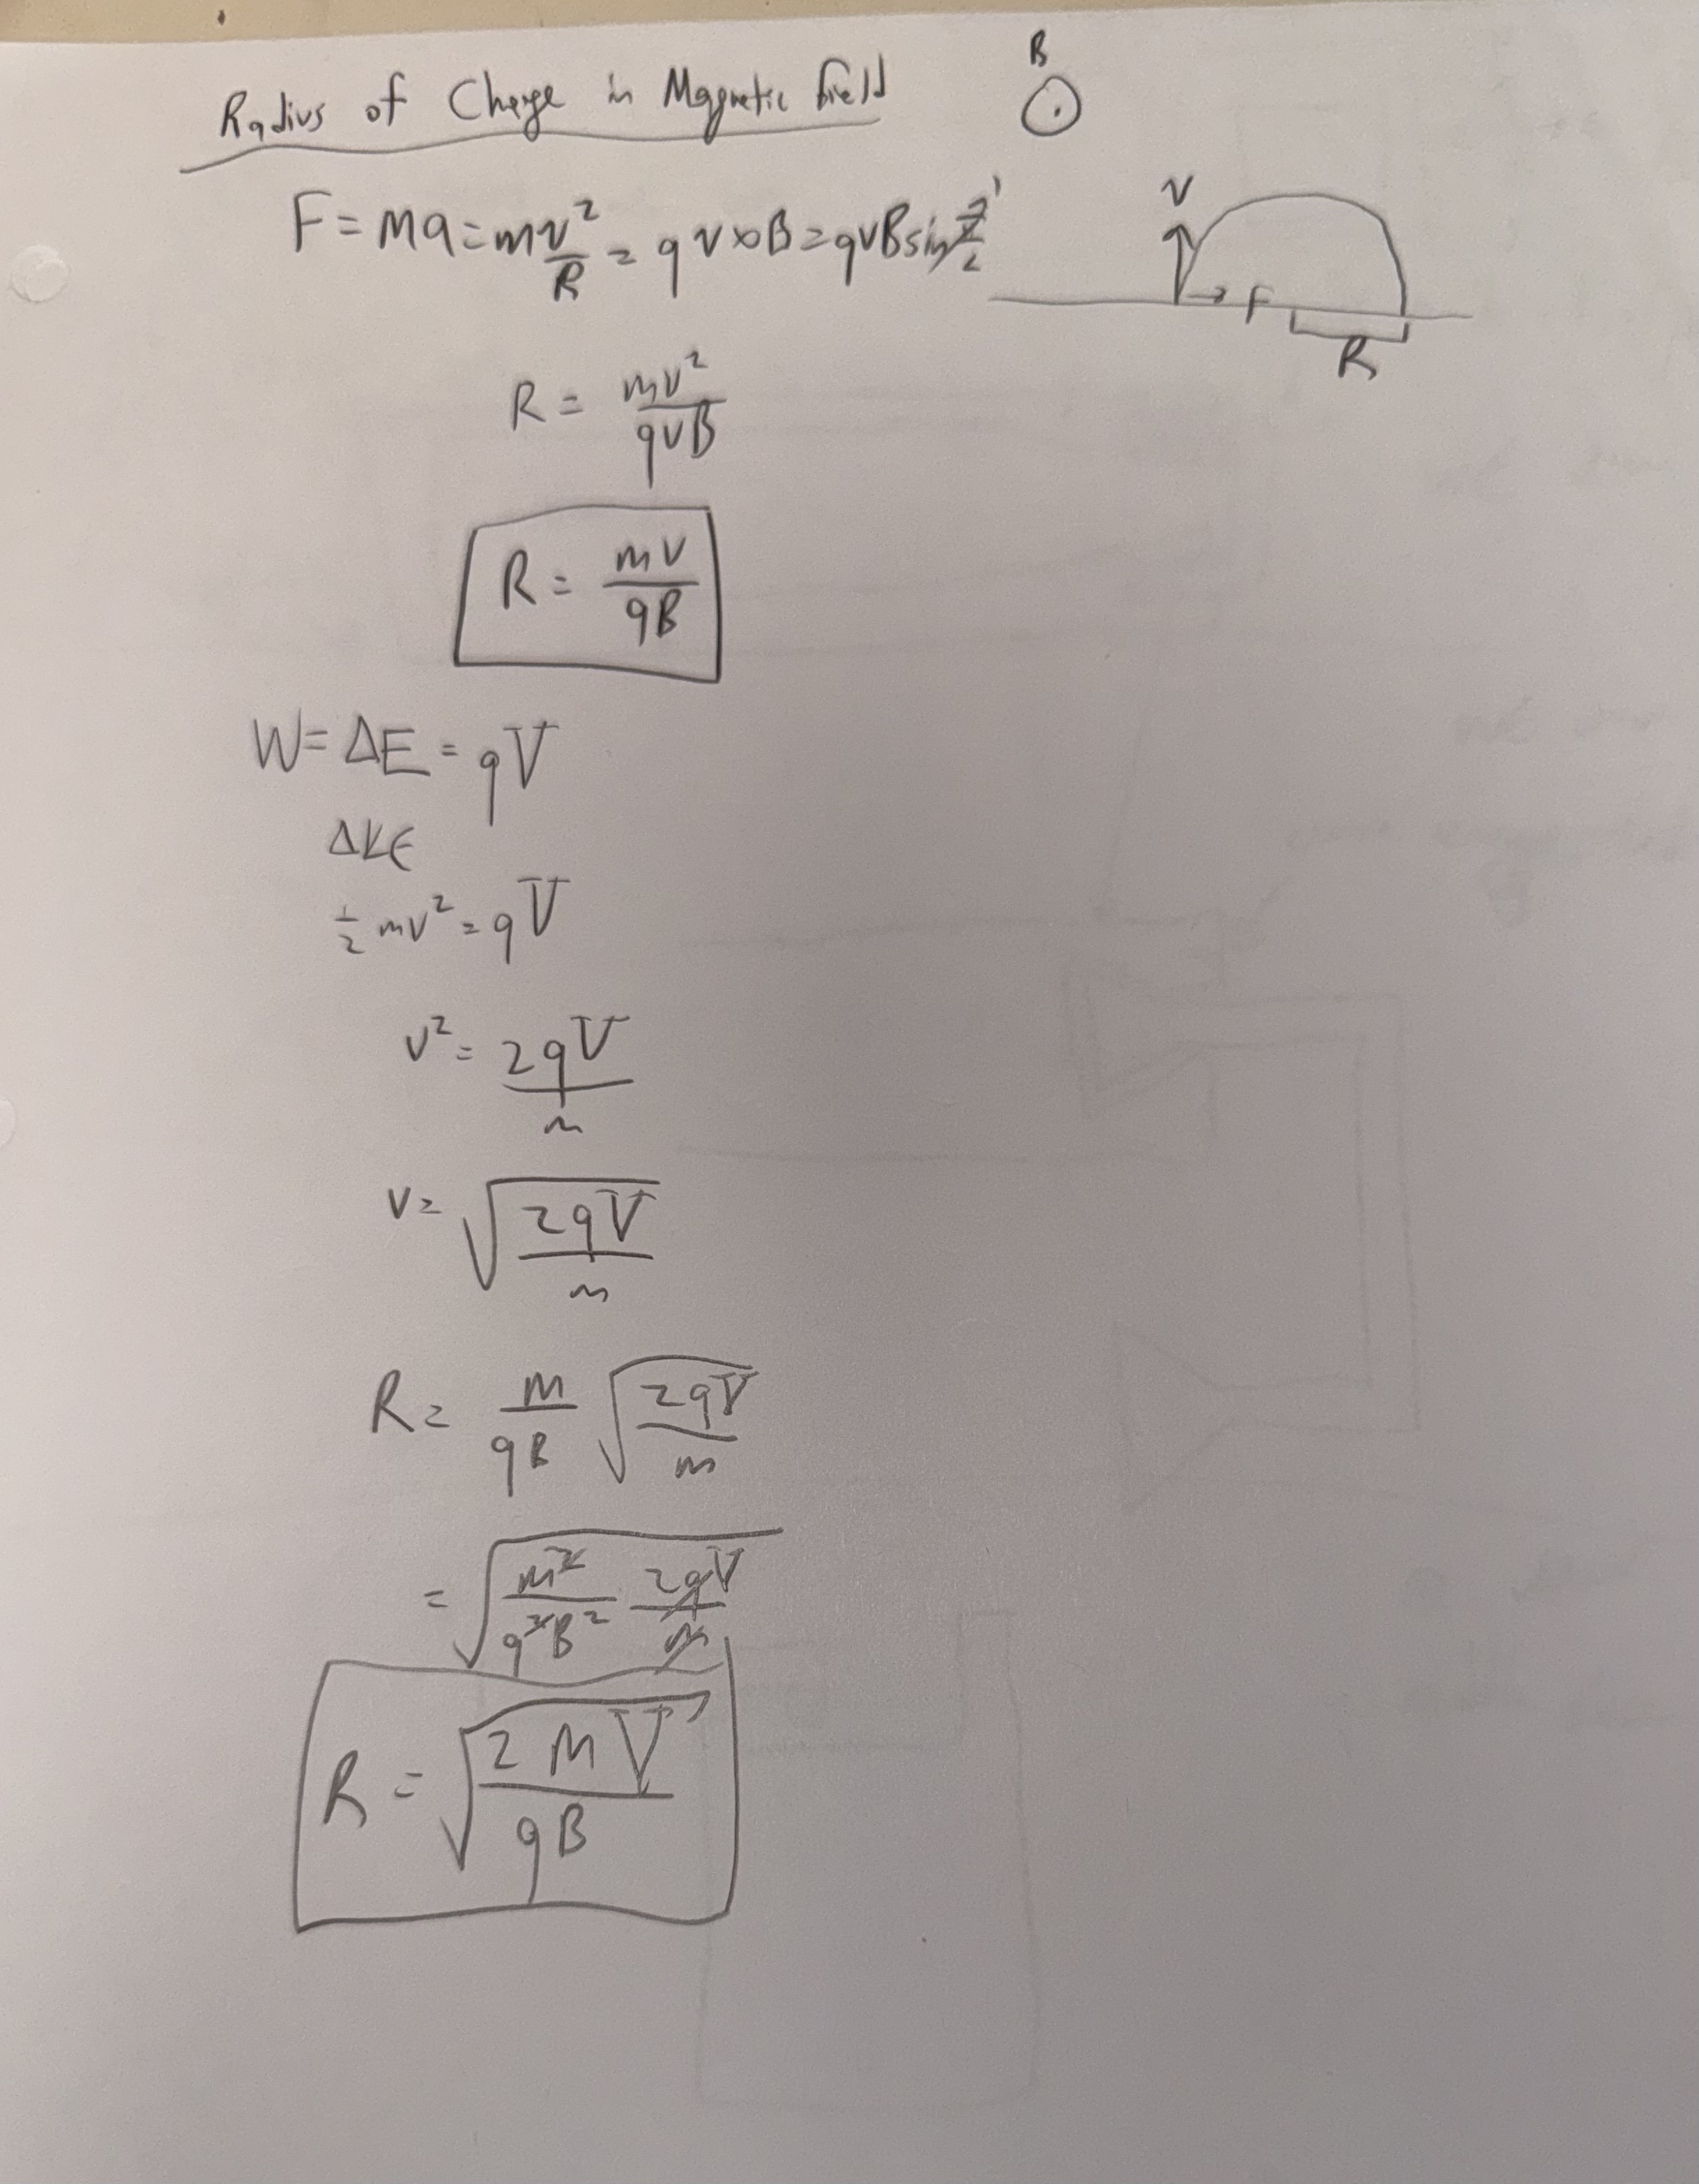 Radius of Charge in Magnetic field
B
F = ma = m v²/R = q v × B = qvB sin π/2 1
V
F
R
R = mv²/qvB
R = mv/qB
W = ΔE = qV
ΔKE
½ mv² = qV
v² = 2qV/m
v = √(2qV/m)
R = m/qB √(2qV/m)
= √(m²/q²B² 2qV/m)
R = √(2mV/qB)